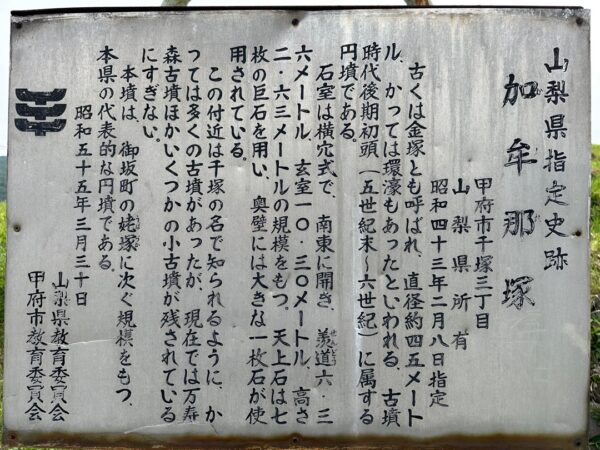 山梨県指定史跡
加牟那塚
甲府市千塚三丁目
山梨県所有
昭和四十三年二月八日指定
古くは金塚とも呼ばれ、直径約四五メート
ル、かつては環濠もあったといわれる、古墳
時代後期初頭(五世紀末~六世紀)に属する
円墳である。
石室は横穴式で、南東に開き 羨道六・三
六メートル 玄室一〇・三〇メートル、高さ
二・六三メートルの規模をもつ。天上石は七
枚の巨石を用い、奥壁には大きな一枚石が使
用されている。
この付近は千塚の名で知られるように、か
つては多くの古墳があったが、現在では万寿
森古墳ほかいくつかの小古墳が残されている
にすぎない。
本墳は、御坂町の姥塚に次ぐ規模をもつ、
本県の代表的な円墳である。
昭和五十五年三月三十日
山梨県教育委員会
甲府市教育委員会